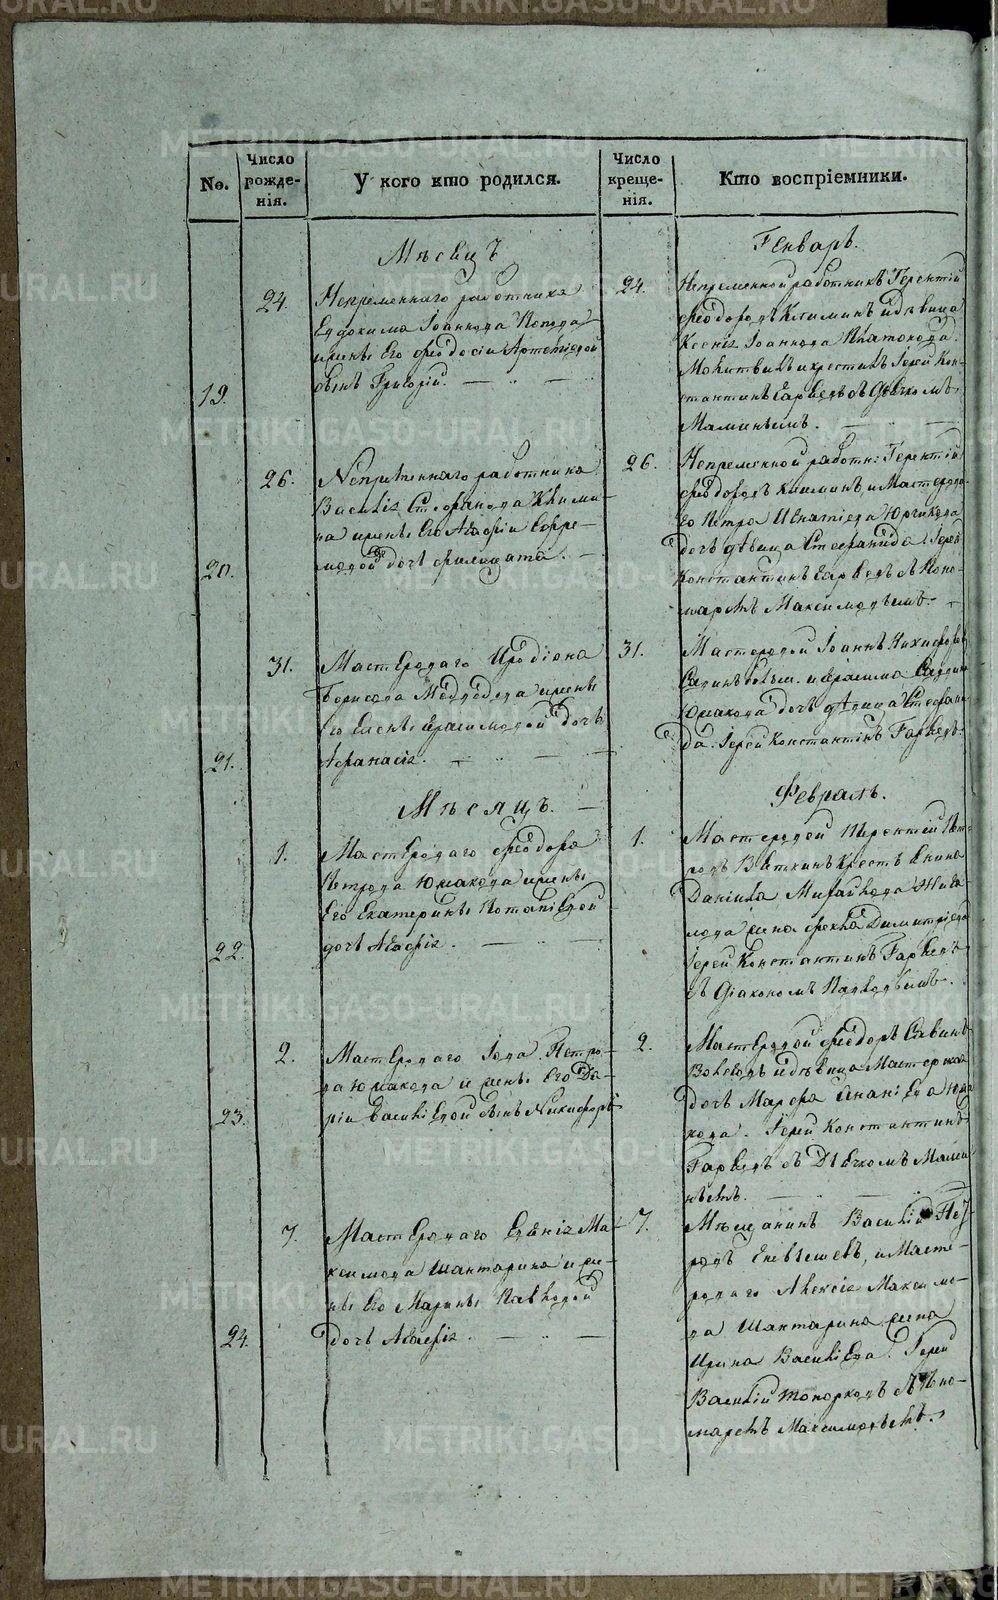 METRIKI.GASO-URAL.RU
№.
Число рожде-нія.
У кого кто родился.
Число креще-нія.
Кто воспріемники.
Мѣсяцъ
Генварь.
19.
24.
Непременнаго работника
Евдокима Іоаннова Попова
и жены Его Феодосіи Артеміевой
сынъ Григорій.
24.
Непременной работникъ Терентій
Феодоровъ Климинъ и дѣвица
Ксенія Іоаннова
Молитвилъ и крестилъ Іерей Кон-
стантинъ Гаряевъ съ Дьячкомъ
Маминымъ.
20.
26.
Непременнаго работника
Василія Стефанова Клими-
на и жены Его Агафіи Ефре-
мовой дочь Филицата.
26.
Непременной работн: Терентій
Феодоровъ Климинъ, и Мастерова-
го Петра Игнатіева
дочь дѣвица Стефанида. Іерей
Константинъ Гаряевъ съ Поно-
маремъ Максимовымъ.
21.
31.
Мастероваго Иродіона
Борисова Медведева и жены
Его Елены Герасимовой дочь
Афанасія.
31.
Мастеровой Іоаннъ Никифоровъ
Юмакова дочь дѣвица Стефани-
да. Іерей Константинъ Гаряевъ.
Мѣсяцъ.
Февраль.
22.
1.
Мастероваго Феодора
Петрова Юмакова и жены
Его Екатерины Потапіевой
дочь Агафія.
1.
Мастеровой Терентій Пет-
ровъ Вяткинъ
Даніила Михайлова
жена Фекла Димитріева
Іерей Константинъ Гаряевъ
съ Діакономъ
23.
2.
Мастероваго Іова Петро-
ва Юмакова и жены Его Да-
ріи Васильевой сынъ Никифоръ
2.
Мастеровой Феодоръ Савинъ
Волковъ и дѣвица Мастерская
дочь Марфа Ананіева Юма-
кова. Іерей Константинъ
Гаряевъ съ Дьячкомъ Мами-
нымъ.
24.
7.
Мастероваго Евгенія Ма-
ксимова Шантарина и же-
ны Его Марины Павловой
дочь Агафія.
7.
Мѣщанинъ Василій Пет-
ровъ и Масте-
роваго Алексія Максимо-
ва Шантарина жена
Ирина Васильева. Іерей
Василій Топорковъ съ Поно-
маремъ Максимовымъ.